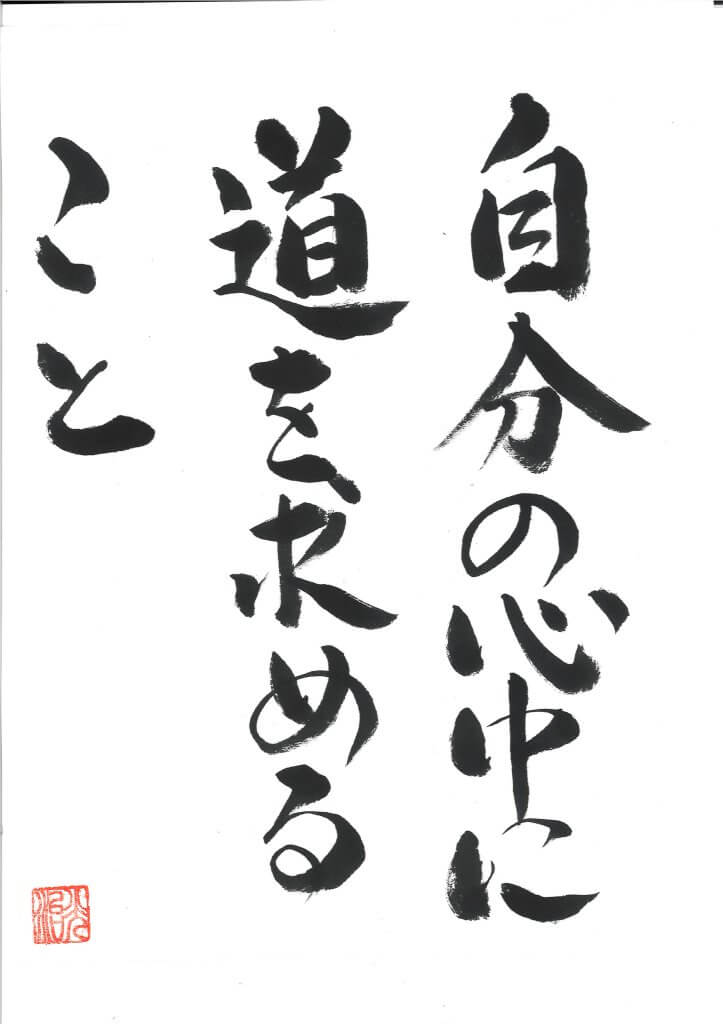 自分の心中に
道を求める
こと